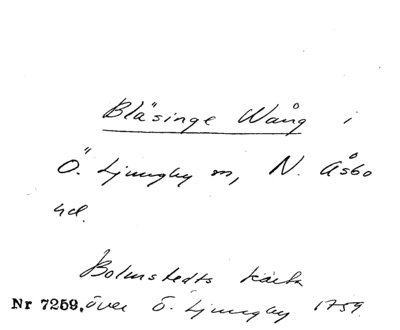 Bläsinge Wång i
Ö. Ljungby sn, N. Åsbo
hd.
Bolmstedts karta
Nr 7259. över Ö. Ljungby 1759